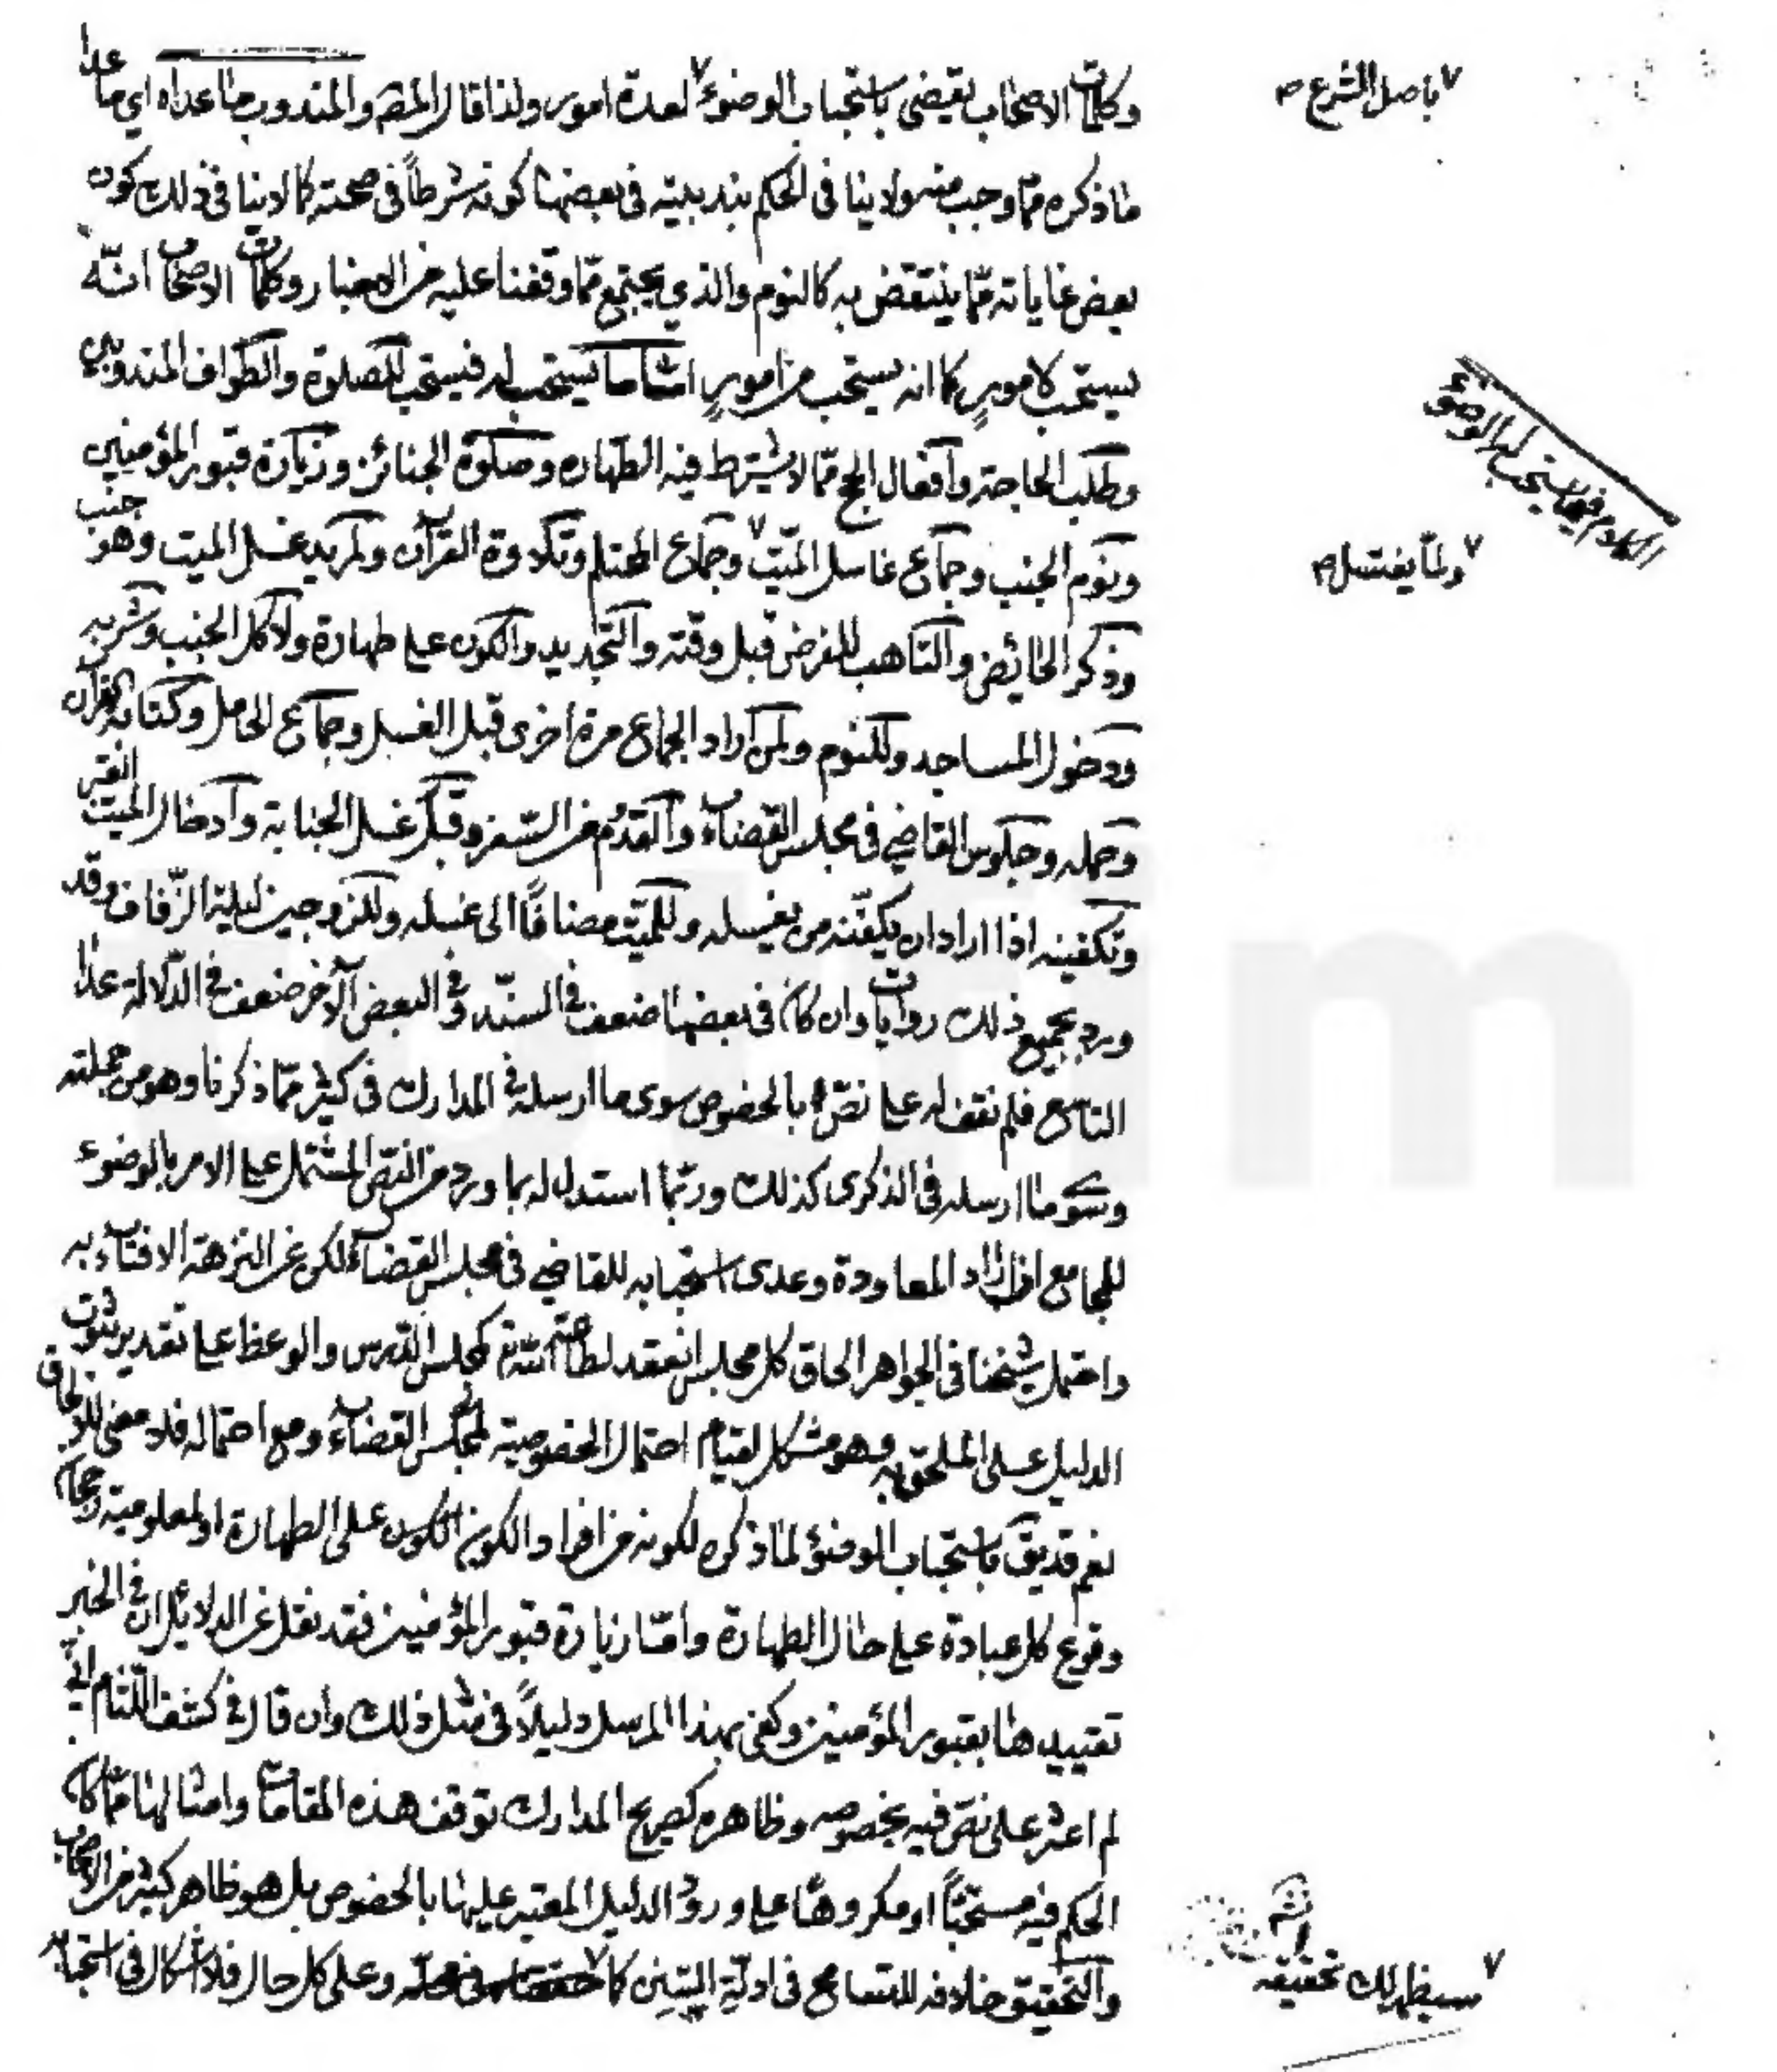 وكلمات الاصحاب يقتضى باستحباب الوضوء لعدة امور ولذا قال المص والمندوب ما عداه اي ما عدا
باصل الشرع ص
ما ذكره مما وجب منه ولا ينافى الحكم بندبيته فى بعضها كونه شرطاً فى صحته كما لا ينافى ذلك كون
بعض غاياته مما ينتقض به كالنوم والذي يجتمع مما وقفنا عليه من الاخبار وكلمات الاصحاب انّه
يستحب لامورٍ كما انه يستحب من امورٍ امّا ما يستحب له فيستحب للصلوة والطواف المندوبين
الكلام فيما يستحب له الوضوء
وطلب الحاجة وافعال الحج مما لا يشترط فيه الطهاره وصلوة الجنائز وزيارة قبور المؤمنين
ونوم الجنب وجماع غاسل الميّت وجماع المحتلم وتلاوة القرآن ولمريد غسل الميت وهو جنب
ولمّا يغتسل ص
وذكر الحائض والتاهب للفرض قبل وقته والتجديد والكون على طهارة ولاكل الجنب وشربه
ودخول المساجد وللنوم ولمن اراد الجماع مرة اخرى قبل الغسل وجماع الحامل وكتابة القرآن
وحمله وجلوس القاضي فى مجلس القضاء والقدوم من السّفر وقبل غسل الجنابة وادخال الميت القبر
وتكفينه اذا اراد ان يكفّنه من يغسله وللميّت مضافاً الى غسله وللزوجين ليلة الزّفاف وقد
ورد بجميع ذلك روايات وان كان فى بعضها ضعف فى السنّد وفى البعض الآخر ضعف فى الدّلالة عدا
التاسع فلم نقف له على نصّ بالخصوص سوى ما ارسله فى المدارك فى كثير ممّا ذكرنا وهو من جملته
وسوى ما ارسله فى الذكرى كذلك وربّما استدل له بما ورد من النصّ المشتمل على الامر بالوضوء
للمجامع اذا اراد المعاودة وعدى استحبابه للقاضي فى مجلس القضاء لكن عن النزهة الافتاء به
واحتمل شيخنا فى الجواهر الحاق كل مجلس انعقد لطاعة الله تع كمجلس الدّرس والوعظ على تقدير ثبوت
الدليل على الملحق به وهو مشكل لقيام احتمال الخصوصية لمجلس القضاء ومع احتماله فلا معنى للالحاق
نعم قد يق باستحباب الوضوء لما ذكره لكونه من افراد الكون على الطهارة او لمعلومية رجحان
وقوع كل عبادة على حال الطهارة وامّا زيارة قبور المؤمنين فقد نقل عن الدلائل ان فى الخبر
تقييدها بقبور المؤمنين وكفى بهذا المرسل دليلاً فى مثل ذلك وان قال فى كشف اللّثام انّي
لم اعثر على نصّ فيه بخصوصه وظاهره كصريح المدارك توقف هذه المقامات وامثالها ممّا كان
الحكم فيه مستحبّاً او مكروهاً على ورود الدليل المعتبر عليها بالخصوص بل هو ظاهر كثير من الاصحاب
والتحقيق خلافه للتسامح فى ادلّة السّنن كما وعلى كل حال فلا اشكال فى استحبابه
سيظهر لك تحقيقه